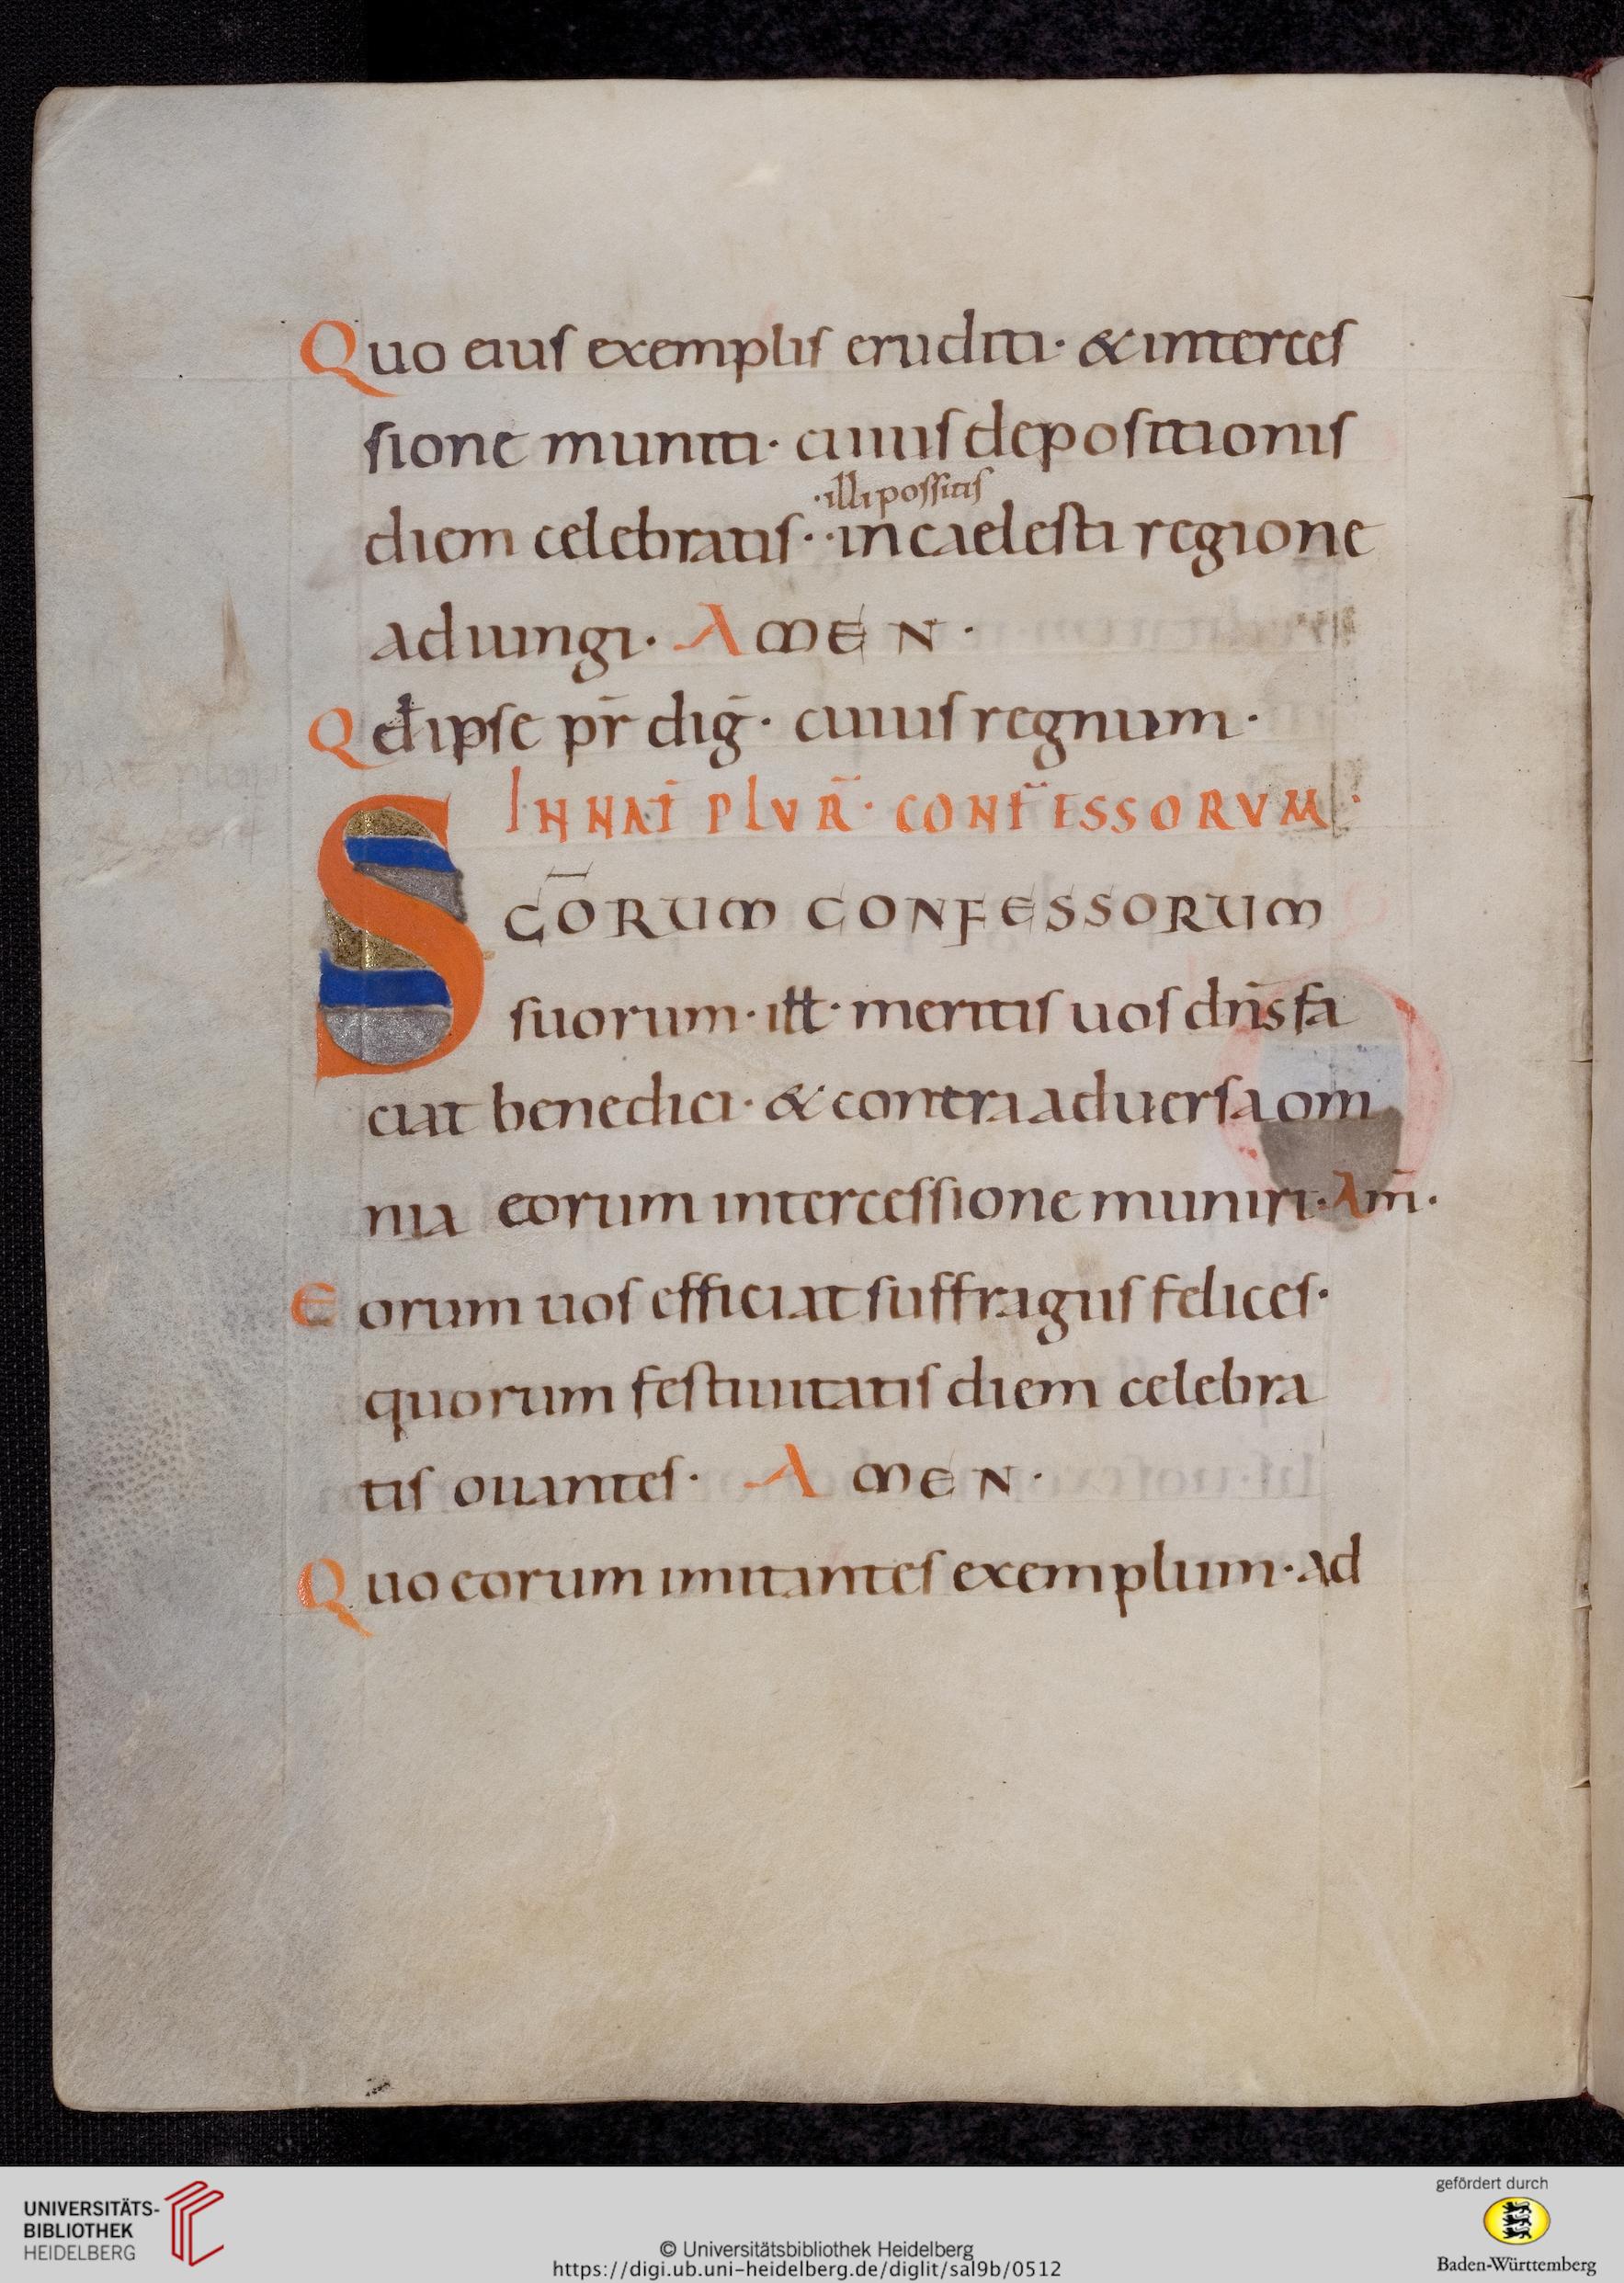 Quo eius exemplis eruditi· & interces
sione muniti· cuius depositionis
·illi possitis
diem celebratis·· in caelesti regione
adiungi· AMEN·
Qđ ipse pr̄ dig̅· cuius regnum·
IN NAT̄ PLVR̄· CONFESSORVM·
SC̄ORUM CONFESSORUM
suorum· iłł· meritis uos dn̄s fa
ciat benedici· & contra aduersa om
nia eorum intercessione muniri· Am̄·
Eorum uos efficiat suffragiis felices·
quorum festiuitatis diem celebra
tis ouantes· AMEN·
Quo eorum imitantes exemplum· ad
UNIVERSITÄTS-
BIBLIOTHEK
HEIDELBERG
© Universitätsbibliothek Heidelberg
https://digi.ub.uni-heidelberg.de/diglit/sal9b/0512
gefördert durch
Baden-Württemberg